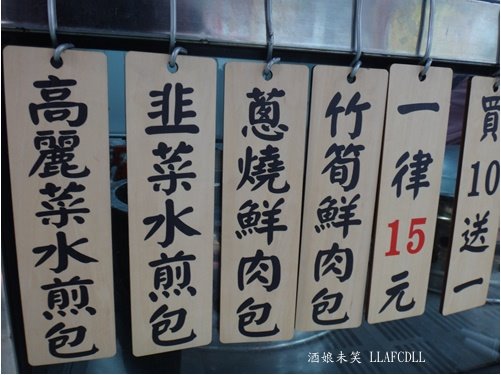 高麗菜水煎包
韭菜水煎包
蔥燒鮮肉包
竹筍鮮肉包
一律15元
買10送一
酒娘未笑 LLAFCDLL